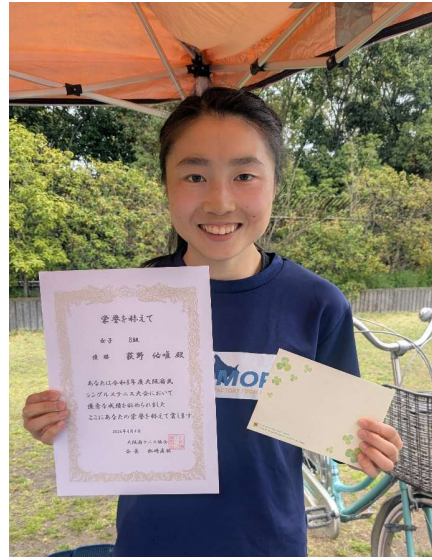 栄誉を称えて
女子 B級
優勝 荻野 佑唯 殿
あなたは令和8年度大阪府民
シングルステニス大会において
優秀な成績を始められました
ここにあなたの栄誉を称えて賞します
2026年4月4日
大阪府テニス協会
会長
MOR
FACTORY